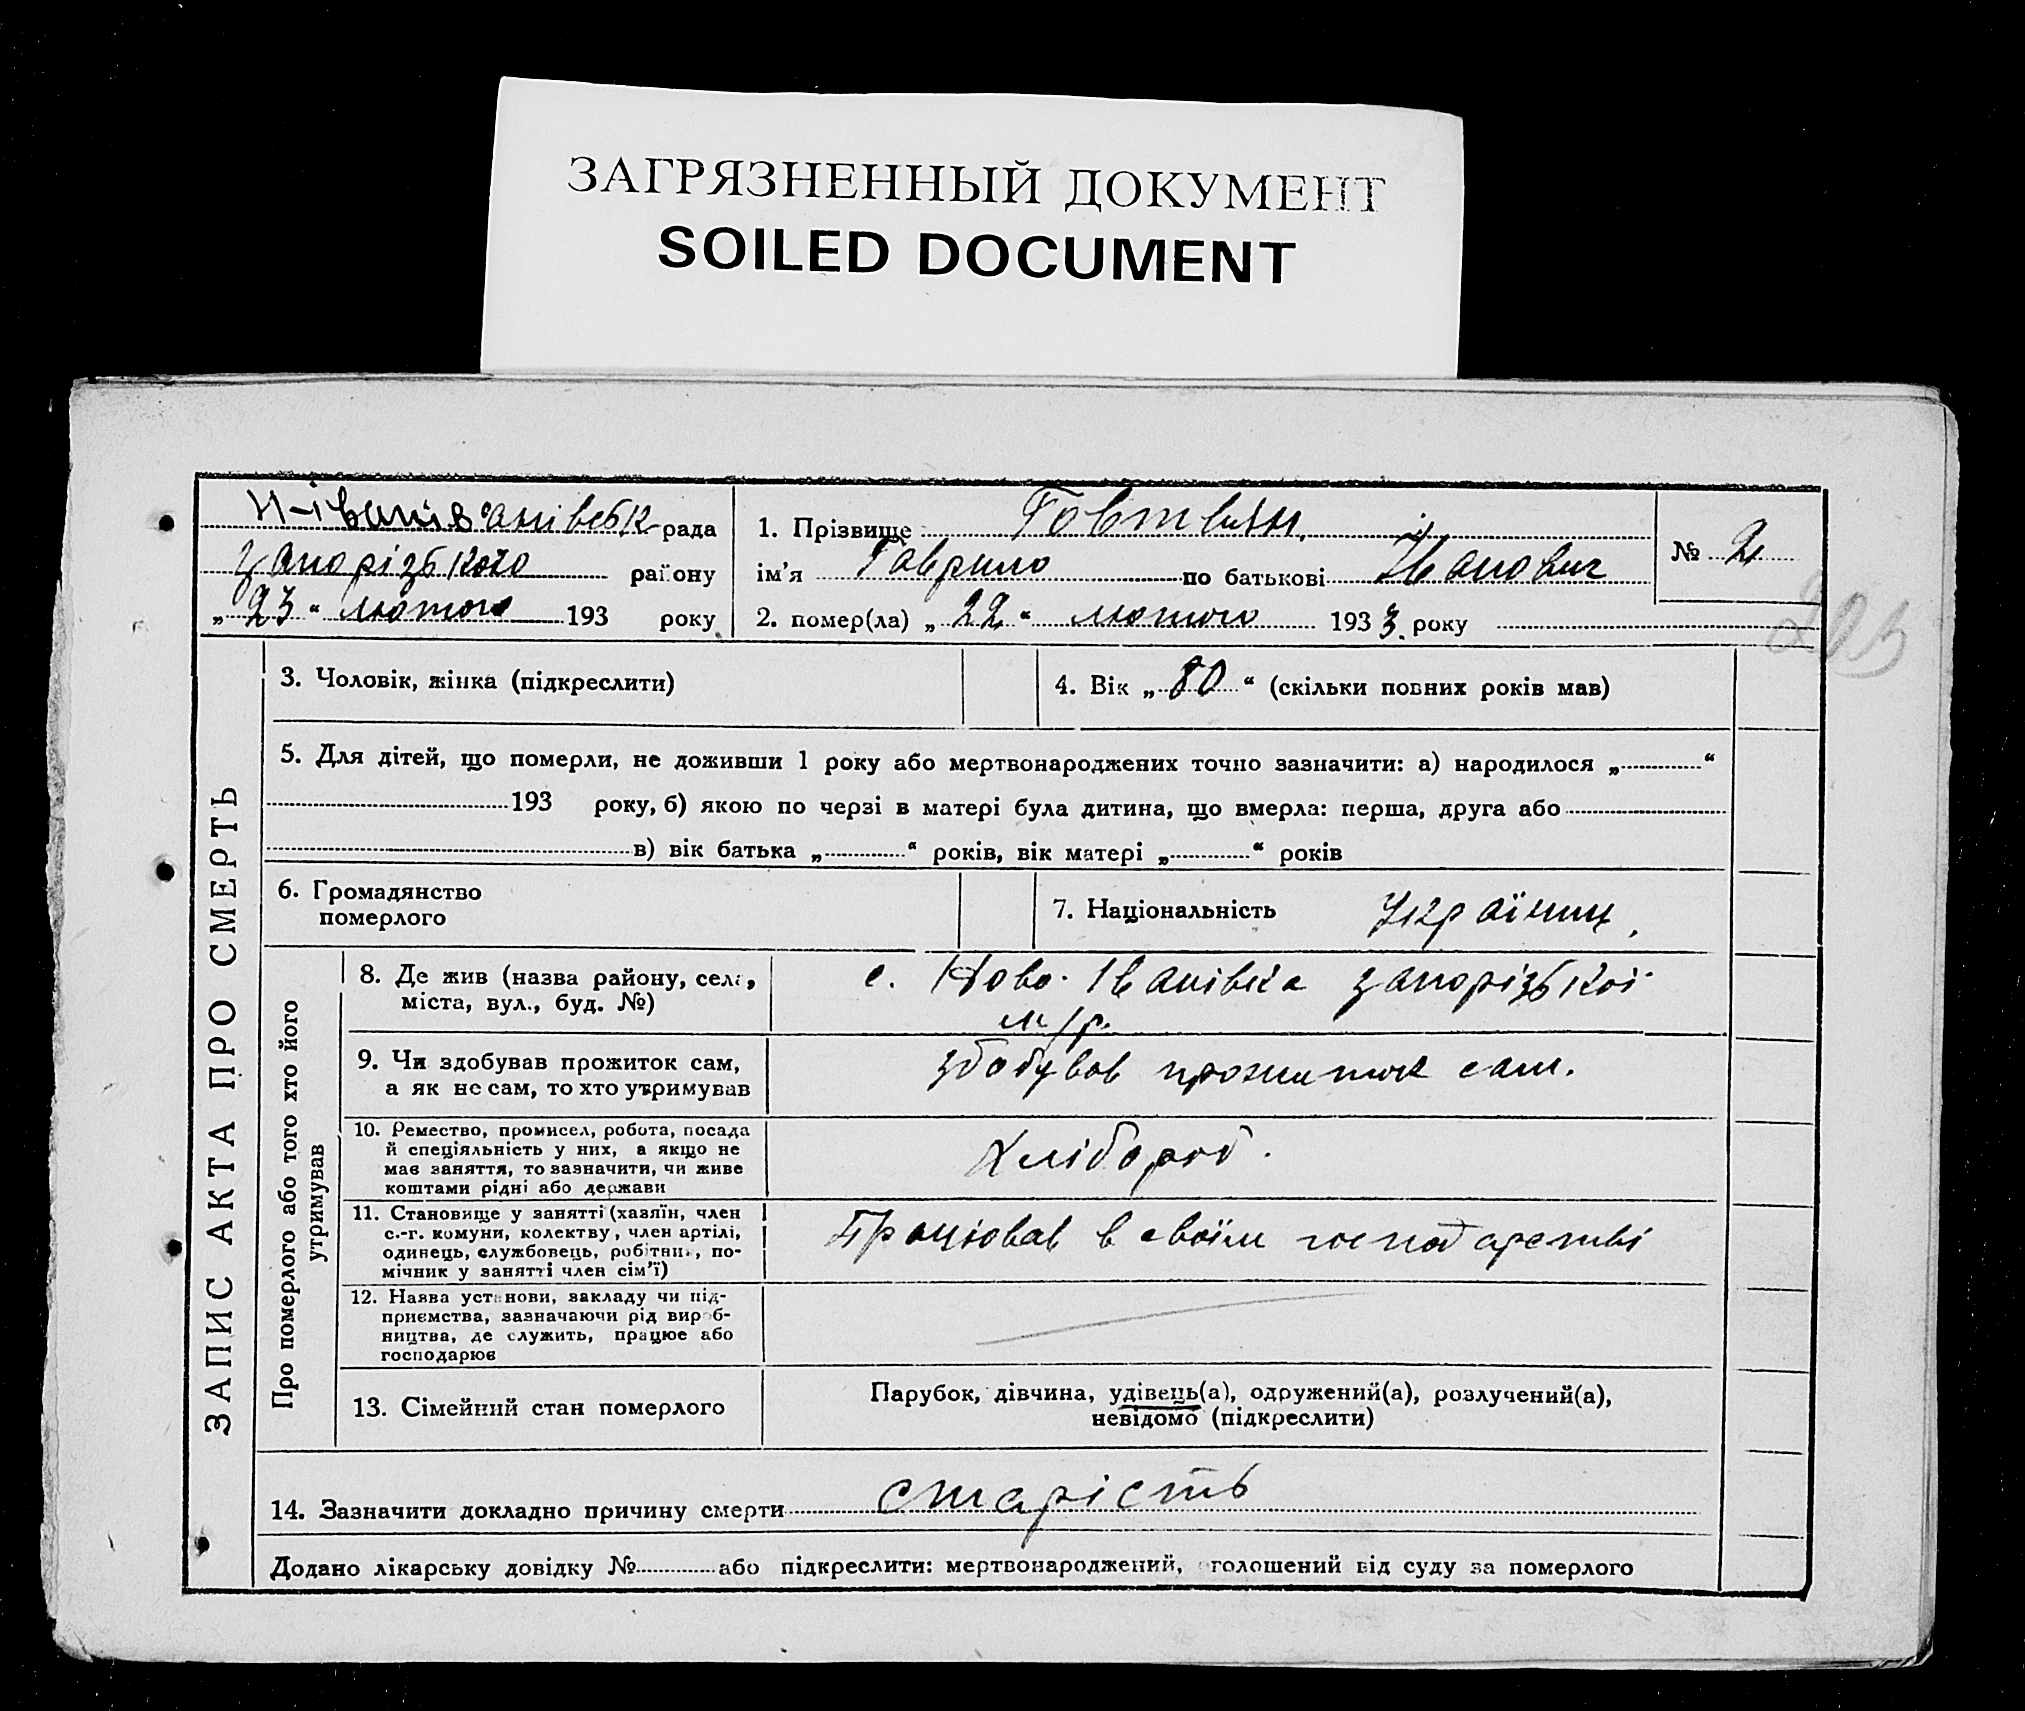 ЗАГРЯЗНЕННЫЙ ДОКУМЕНТ
SOILED DOCUMENT
рада
Запорізького району
„ 23 “ лютого 193 року
1. Прізвище Говтвян,
ім'я Гаврило по батькові Іванович
2. помер(ла) „ 22 “ лютого 1933. року
№ 2
ЗАПИС АКТА ПРО СМЕРТЬ
3. Чоловік, жінка (підкреслити)
4. Вік „ 80 “ (скільки повних років мав)
5. Для дітей, що померли, не доживши 1 року або мертвонароджених точно зазначити: а) народилося „ “
193 року, б) якою по черзі в матері була дитина, що вмерла: перша, друга або
в) вік батька „ “ років, вік матері „ “ років
6. Громадянство
померлого
7. Національність Українец,
Про померлого або того хто його
утримував
8. Де жив (назва району, села,
міста, вул., буд. №)
с. Ново-Іванівка Запорізької
м/р.
9. Чи здобував прожиток сам,
а як не сам, то хто утримував
здобував прожиток сам.
10. Ремество, промисел, робота, посада
й спеціяльність у них, а якщо не
має заняття, то зазначити, чи живе
коштами рідні або держави
Хлібороб.
11. Становище у занятті (хазяїн, член
с.-г. комуни, колективу, член артілі,
одинець, службовець, робітник, по-
мічник у занятті член сім'ї)
Працював в своїм господарстві
12. Назва установи, закладу чи під-
приємства, зазначаючи рід вироб-
ництва, де служить, працює або
господарює
13. Сімейний стан померлого
Парубок, дівчина, удівець(а), одружений(а), розлучений(а),
невідомо (підкреслити)
14. Зазначити докладно причину смерти старість
Додано лікарську довідку № або підкреслити: мертвонароджений, оголошений від суду за померлого